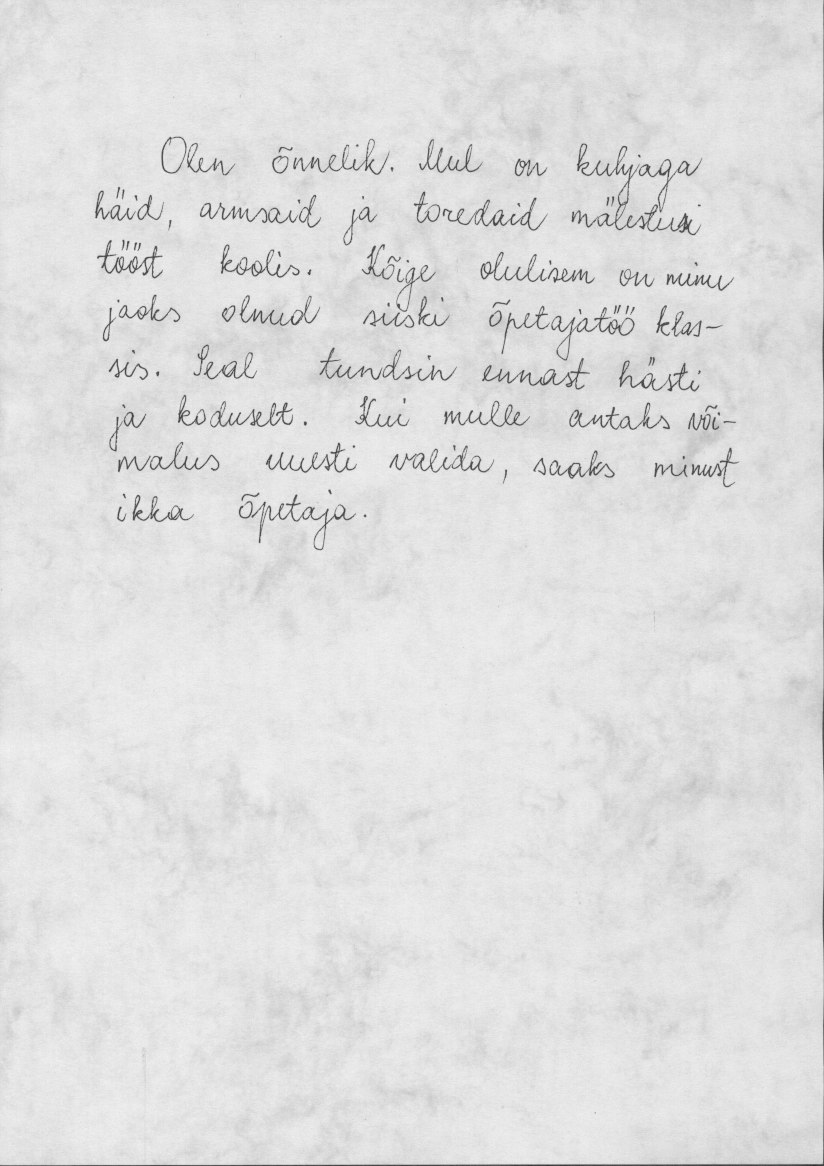 Olen õnnelik. Mul on kuhjaga
häid, armsaid ja toredaid mälestusi
tööst koolis. Kõige olulisem on minu
jaoks olnud siiski õpetajatöö klas-
sis. Seal tundsin ennast hästi
ja koduselt. Kui mulle antaks või-
malus uuesti valida, saaks minust
ikka õpetaja.